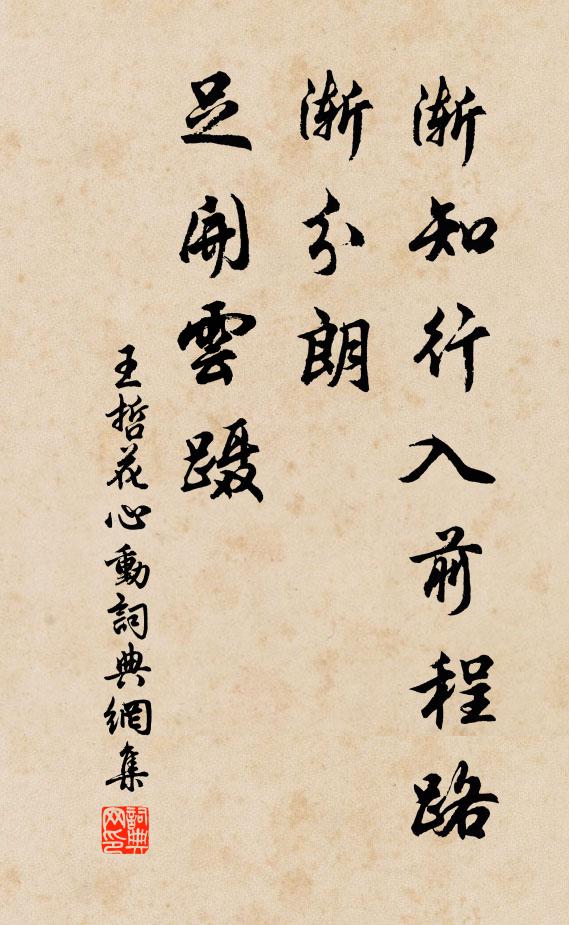 漸知行入前程路
漸分朗
足開雲蹑
王哲花心動詞典網集
詞典网印